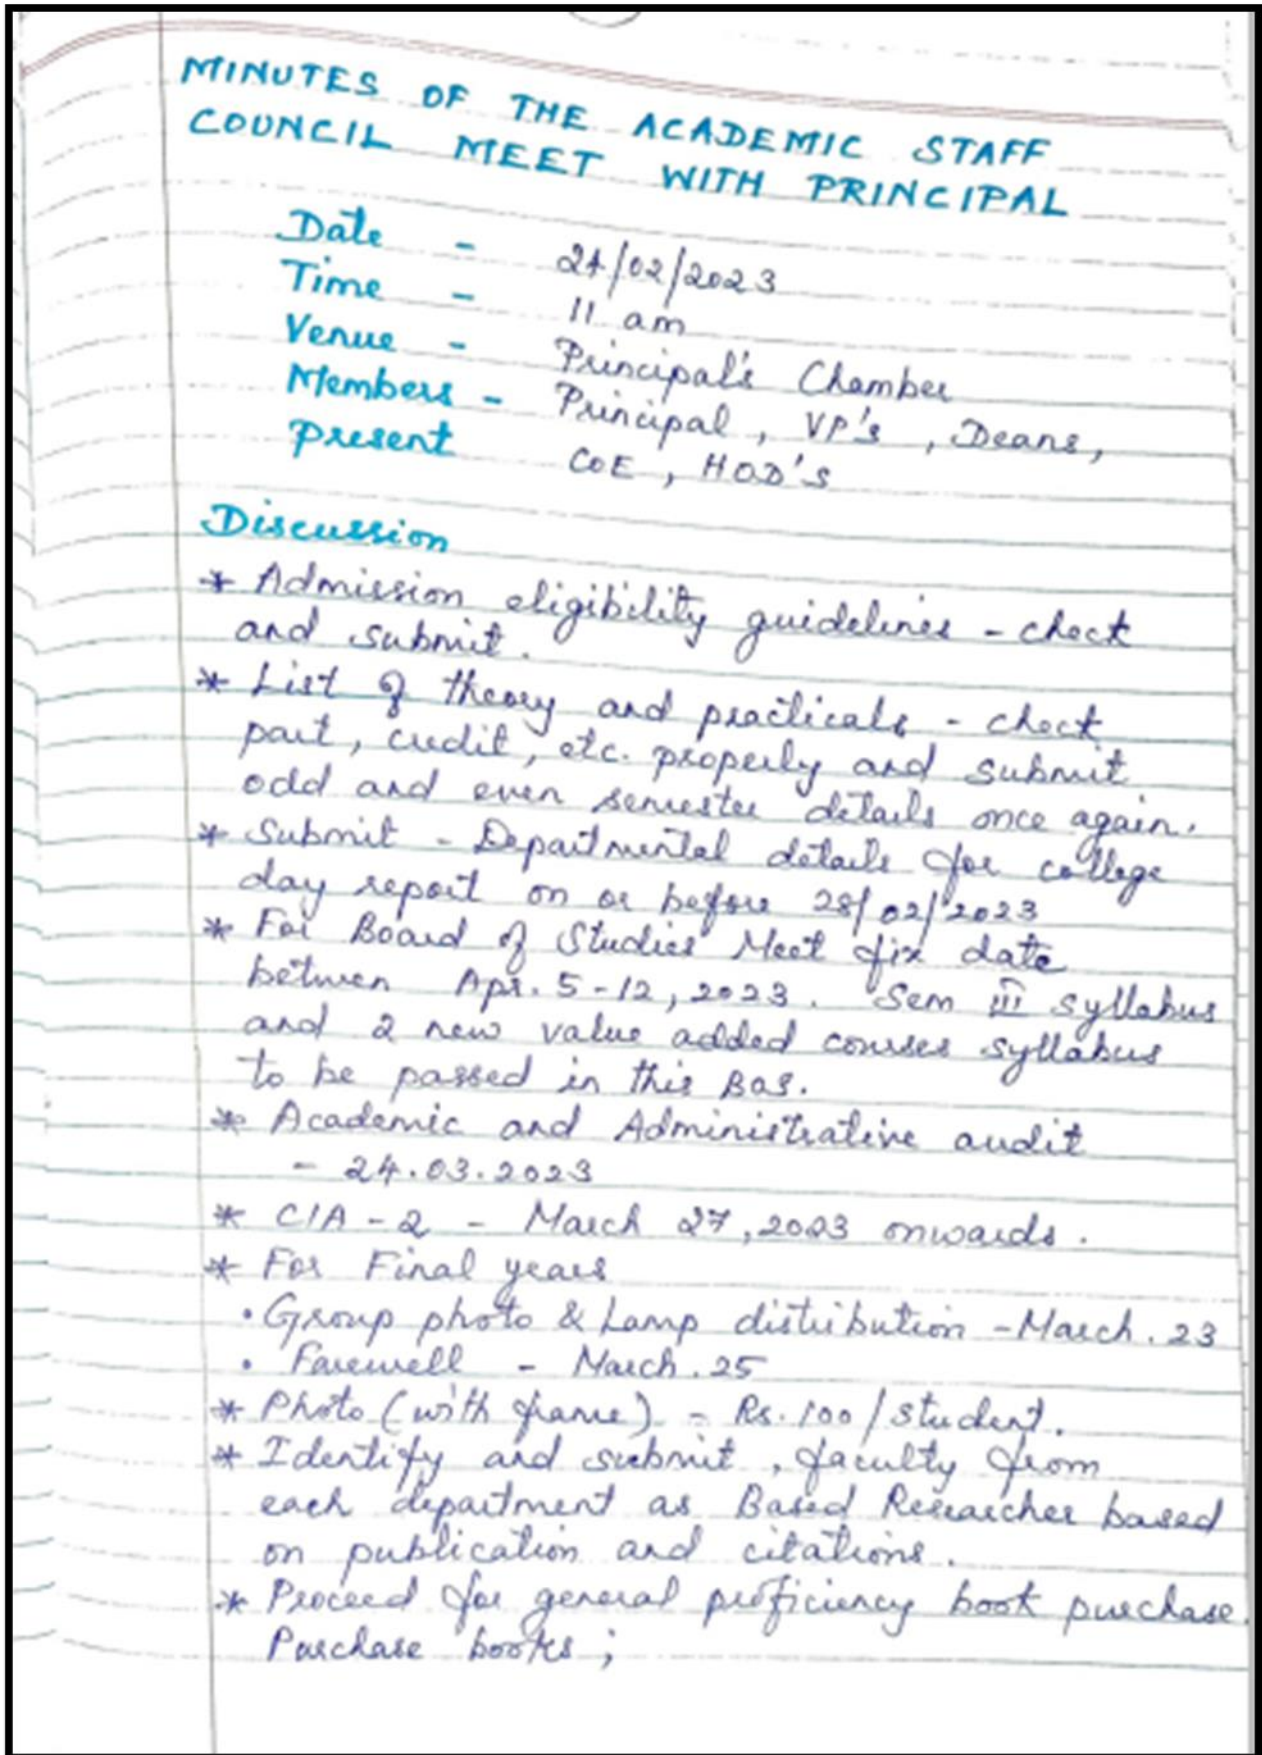 MINUTES OF THE ACADEMIC STAFF
COUNCIL MEET WITH PRINCIPAL
Date - 24/02/2023
Time - 11 am
Venue - Principal's Chamber
Members - Principal, VP's, Deans,
Present COE, HOD's
Discussion
* Admission eligibility guidelines - check
and submit.
* List of theory and practicals - check
part, credit, etc. properly and submit
odd and even semester details once again.
* Submit - Departmental details for college
day report on or before 28/02/2023
* For Board of Studies Meet fix date
between Apr. 5-12, 2023. Sem III syllabus
and 2 new value added courses syllabus
to be passed in this BoS.
* Academic and Administrative audit
- 24.03.2023
* CIA - 2 - March 27, 2023 onwards.
* For Final years
• Group photo & Lamp distribution - March. 23
• Farewell - March. 25
* Photo (with frame) - Rs. 100 / student.
* Identify and submit, faculty from
each department as Based Researcher based
on publication and citations.
* Proceed for general proficiency book purchase.
Purchase books;